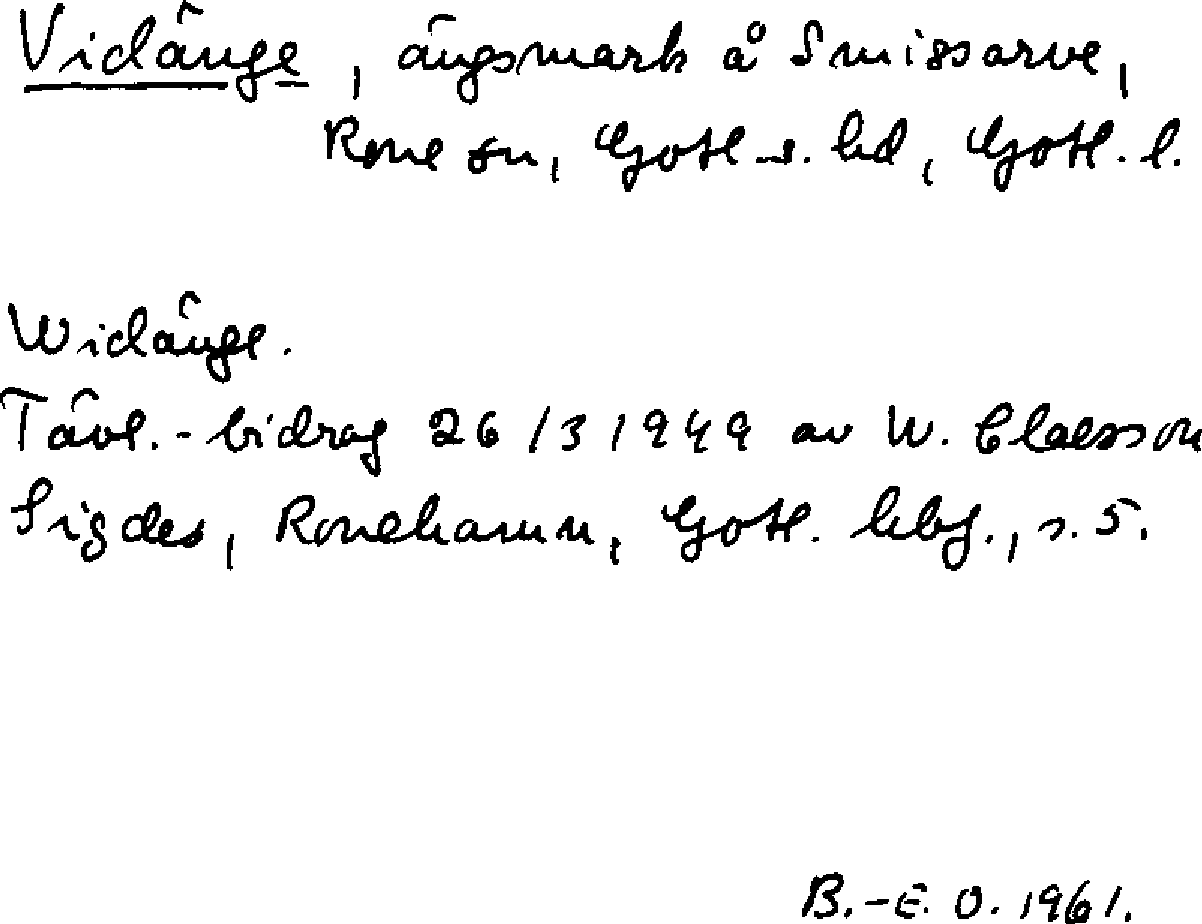 Vidänge, ängsmark å Smissarve,
Rone sn, Gotl. s. hd, Gotl. l.
Widänge.
Tävl.-bidrag 26/3 1949 av W. Claesson
Sigdes, Ronehamn, Gotl. hbg., s. 5.
B.-E. O. 1961.